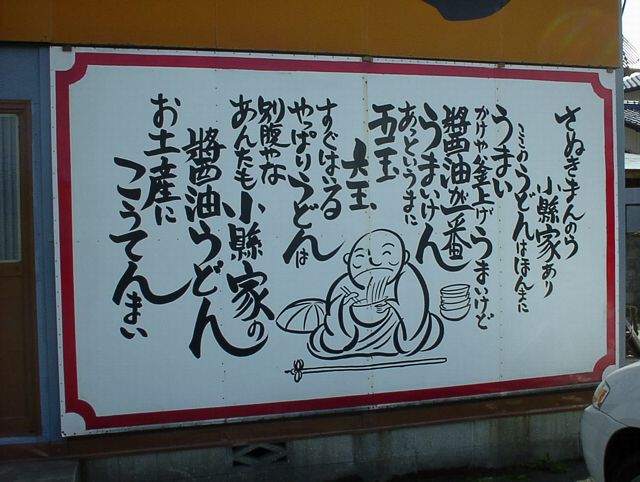 さぬきまんのう
小縣家あり
ここのうどんはほんまに
うまい
かけや釜上げうまいけど
醬油が一番
うまいけん
あっというまに
五玉
六玉
すぐはいる
やっぱりうどんは
別腹やな
あんたも小縣家の
醬油うどん
お土産に
こうてんまい